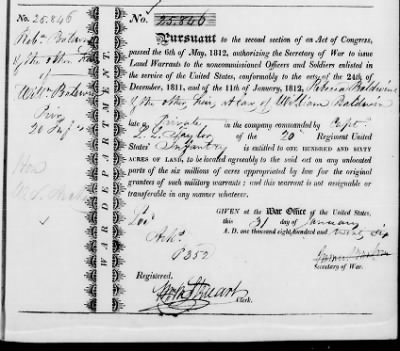 No. 25.846
Reba Baldwin
& the other
of
Wm Baldwin
20 Inf
Hon
WAR DEPARTMENT.
No. 25.846
Pursuant to the second section of an Act of Congress,
passed the 6th of May, 1812, authorizing the Secretary of War to issue
Land Warrants to the noncommissioned Officers and Soldiers enlisted
in the service of the United States, conformably to the acts of the 24th of
December, 1811, and of the 11th of January, 1812, Rebecca Baldwin
& the other heirs at law of William Baldwin
late a Private in the company commanded by Capt.
Taylor of the 20th Regiment United
States' Infantry is entitled to ONE HUNDRED AND SIXTY
ACRES OF LAND, to be located agreeably to the said act on any unlocated
parts of the six millions of acres appropriated by law for the original
grantees of such military warrants; and this warrant is not assignable or
transferable in any manner whatever.
GIVEN at the War Office of the United States,
this 31 day of January
A. D. one thousand eight hundred and
Secretary of War.
Registered.
Clerk.